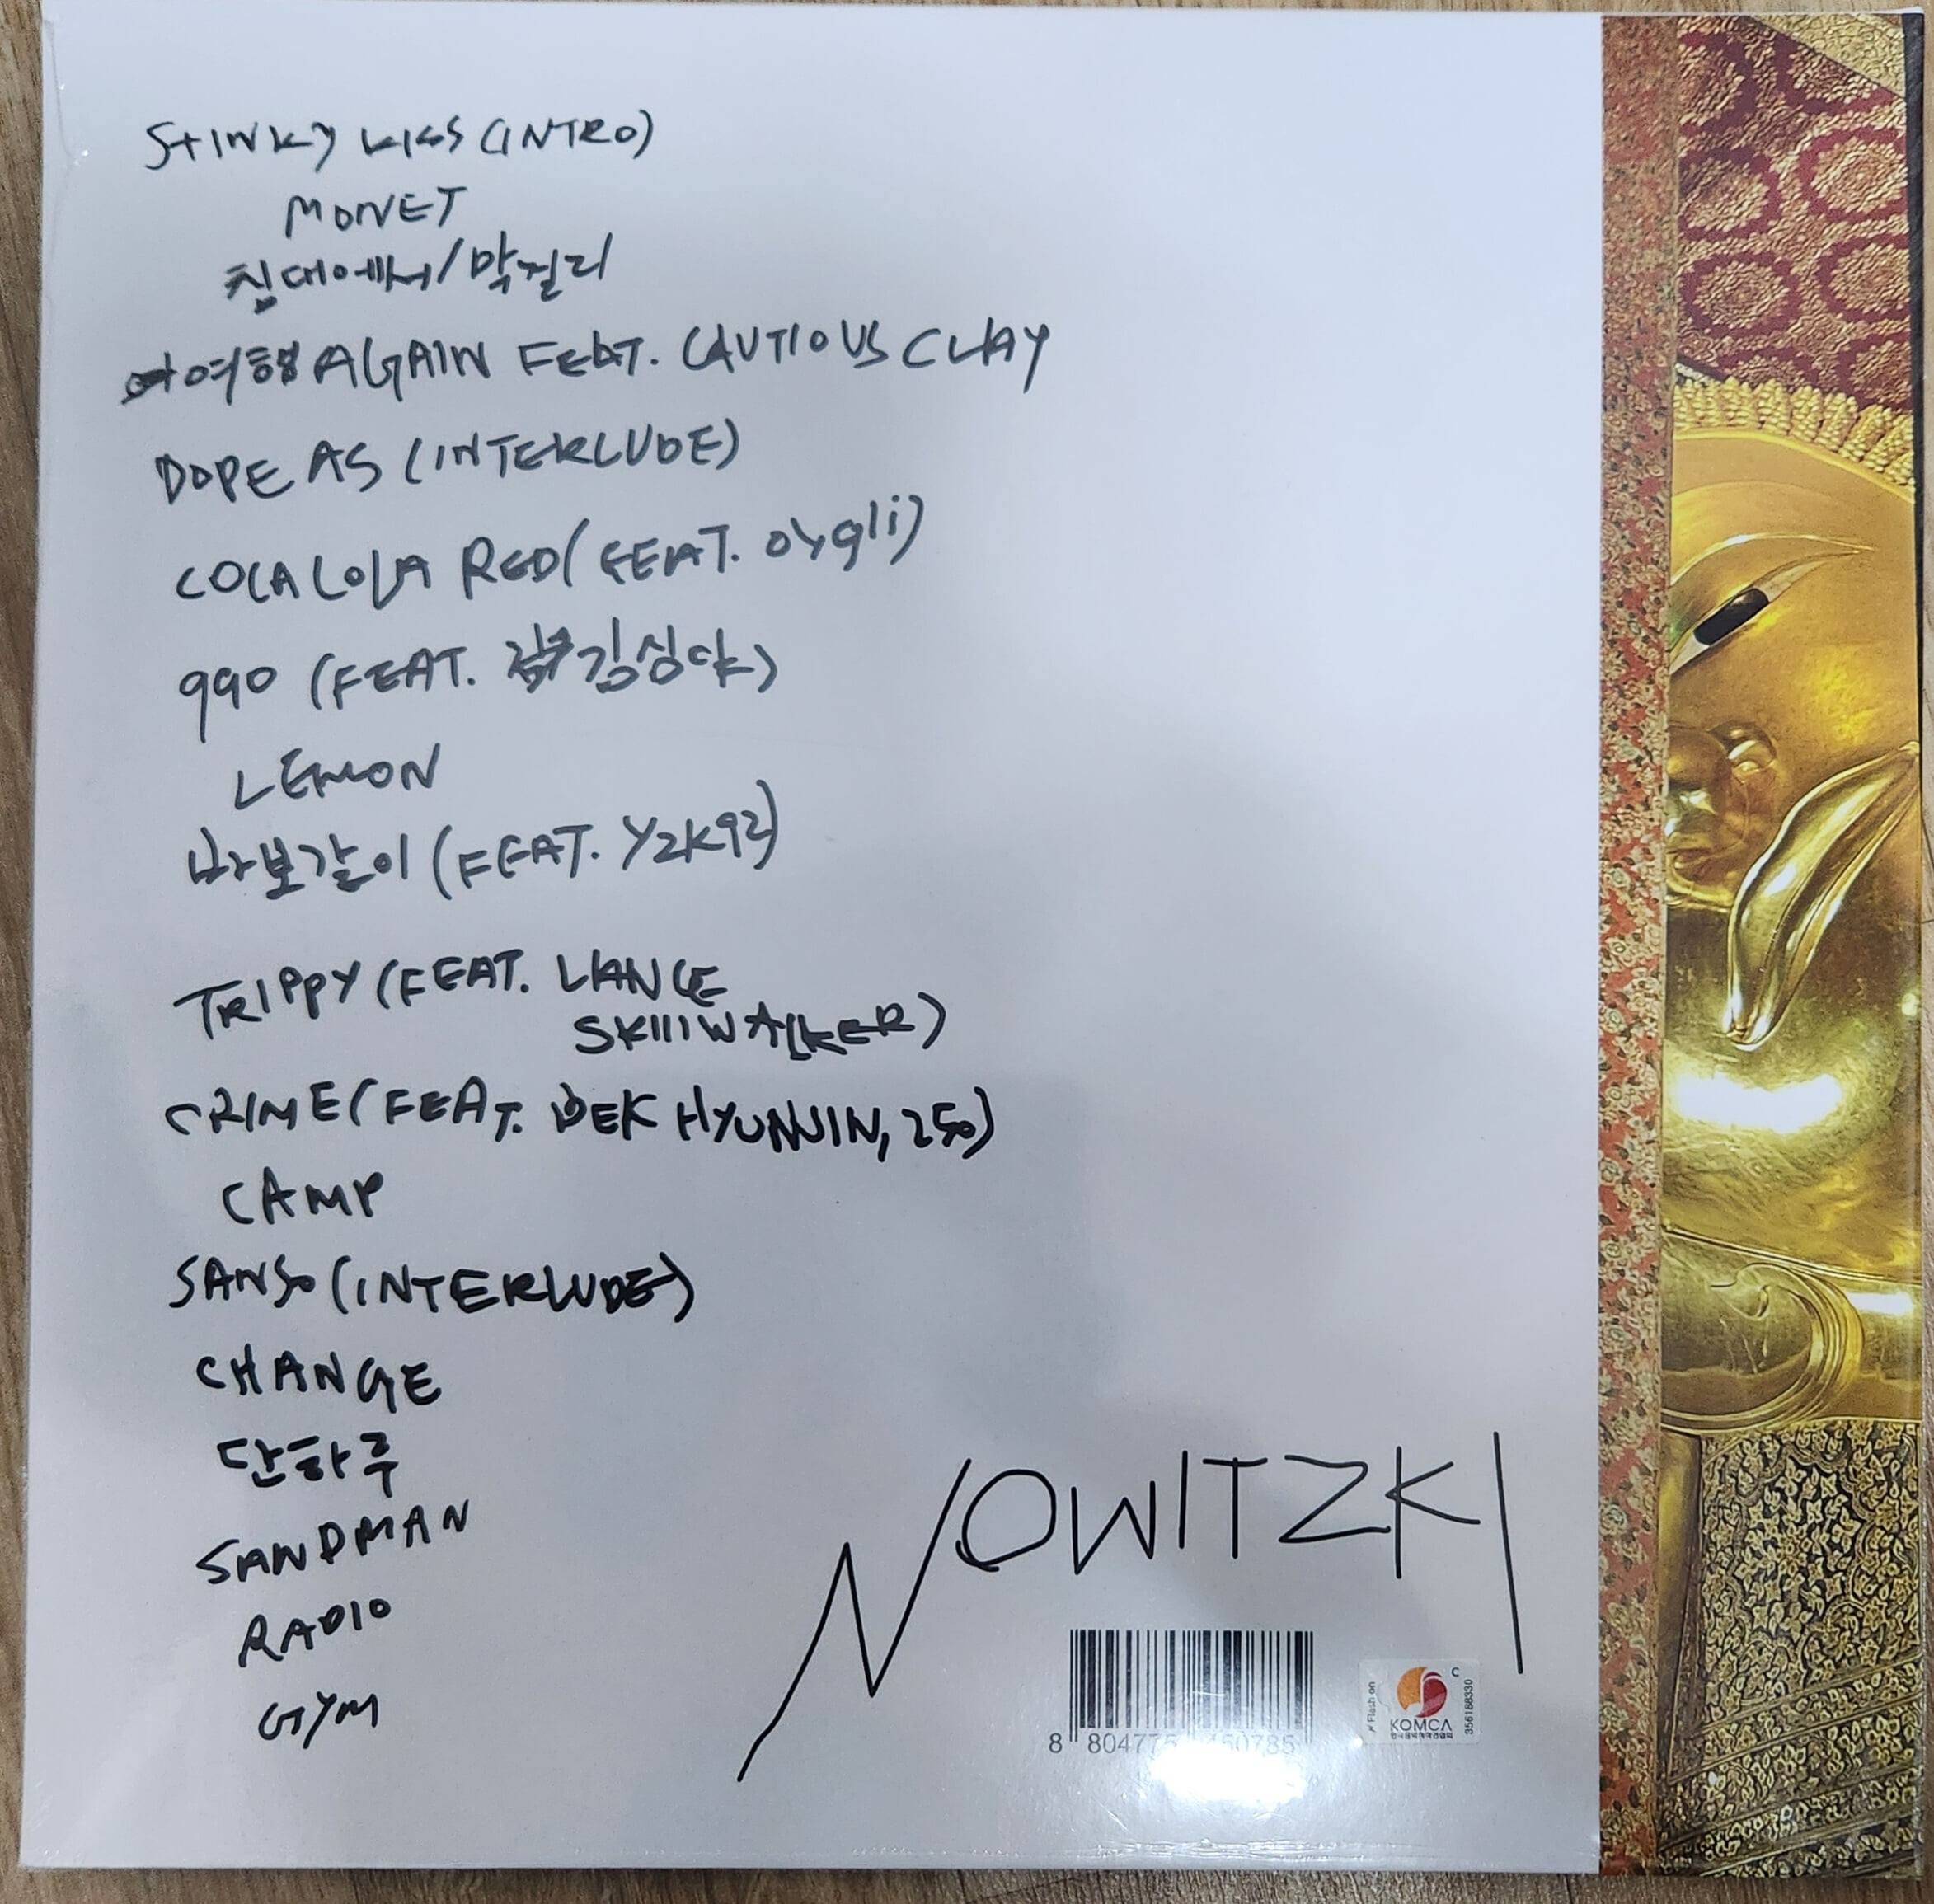 STINKY KISS (INTRO)
MONET
침대에서/막걸리
여행 AGAIN FEAT. CAUTIOUS CLAY
DOPE AS (INTERLUDE)
COCA COLA RED (FEAT. oygli)
990 (FEAT. 김심야)
LEMON
바보같이 (FEAT. Y2K92)
TRIPPY (FEAT. LANCE
SKIIIWALKER)
CRIME (FEAT. BEK HYUNJIN, 250)
CAMP
SANSO (INTERLUDE)
CHANGE
단하루
SANDMAN
RADIO
GYM
NOWITZKI
Flash on
C
KOMCA
한국음악저작권협회
356188330